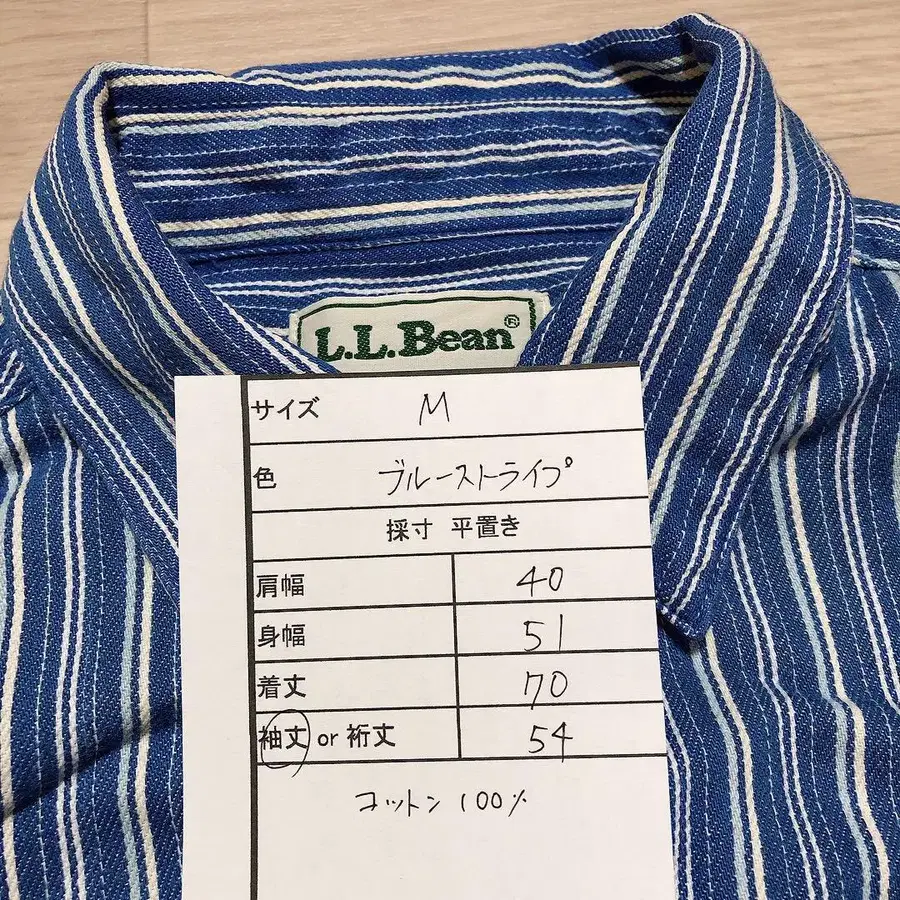 L.L.Bean®
サイズ M
色 ブルーストライプ
採寸 平置き
肩幅 40
身幅 51
着丈 70
袖丈 or 裄丈 54
コットン 100%